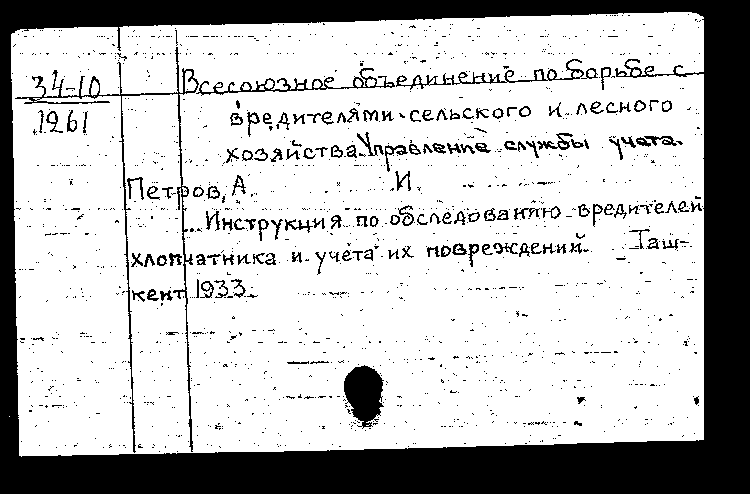 34-10
1261
Всесоюзное объединение по борьбе с
вредителями сельского и лесного
хозяйства. Управление службы учета.
Петров, А. И.
... Инструкция по обследованию вредителей
хлопчатника и учета их повреждений. Таш-
кент 1933.